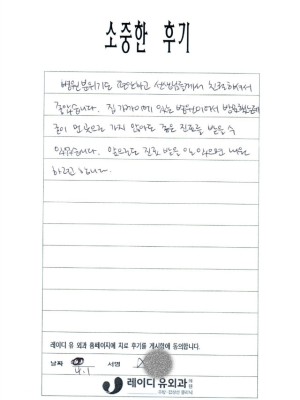 소중한 후기
병원 분위기도 편안하고 선생님들께서 친절하셔서
좋았습니다. 집 가까이에 있는 병원이어서 방문했는데
굳이 먼 곳으로 가지 않아도 좋은 진료를 받을 수
있었습니다. 앞으로도 진료 받을 일 있으면 내원
하려고 합니다.
레이디 유 외과 홈페이지에 치료 후기를 게시함에 동의합니다.
날짜 4.1 서명
레이디 유외과 의원
유방·갑상선 클리닉